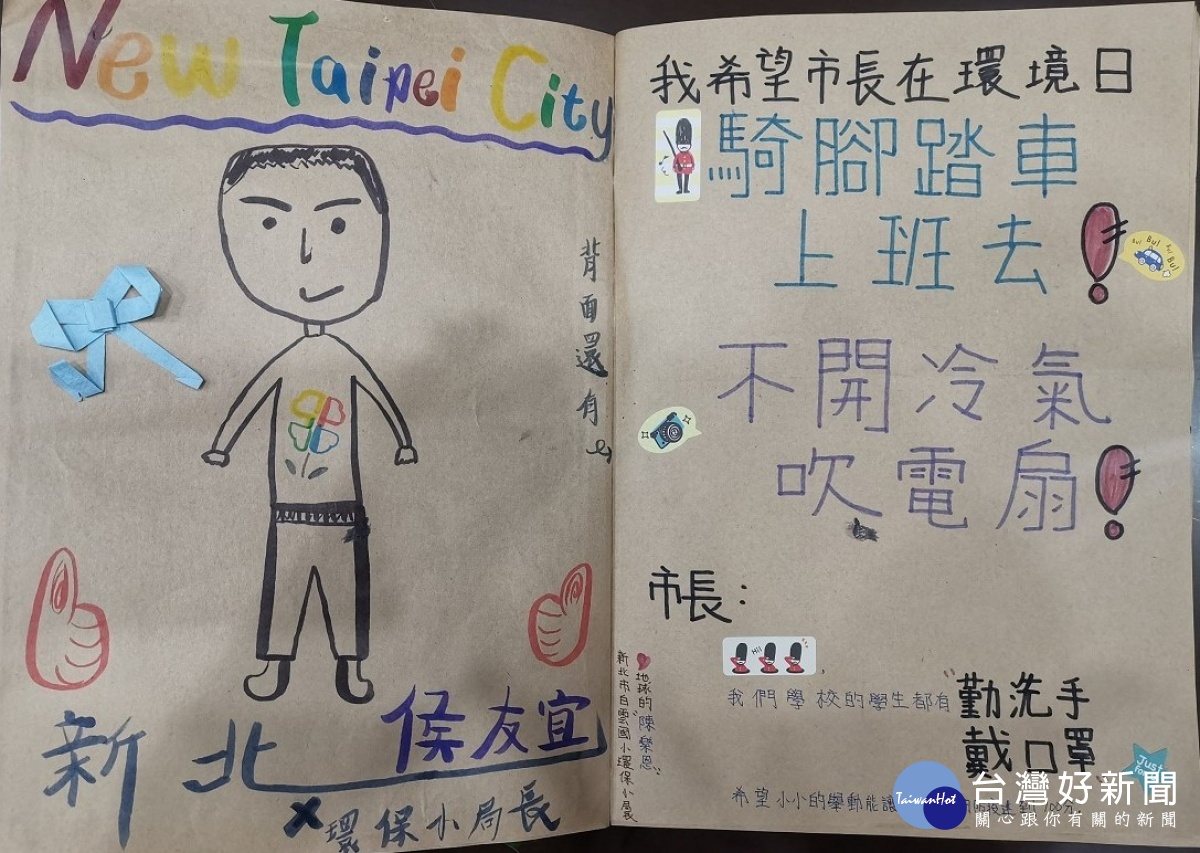 New Taipei City
背面還有
新北 侯友宜
x 環保小局長
我希望市長在環境日
騎腳踏車
上班去!
Bu! Bu! Bu!
不開冷氣
吹電扇!
市長:
Hi!
我們學校的學生都有"勤洗手
戴口罩
Just
希望小小的舉動能讓
100分
地球的陳榮恩
新北市白雲國小環保小局長
TaiwanHot
台灣好新聞
關心跟你有關的新聞